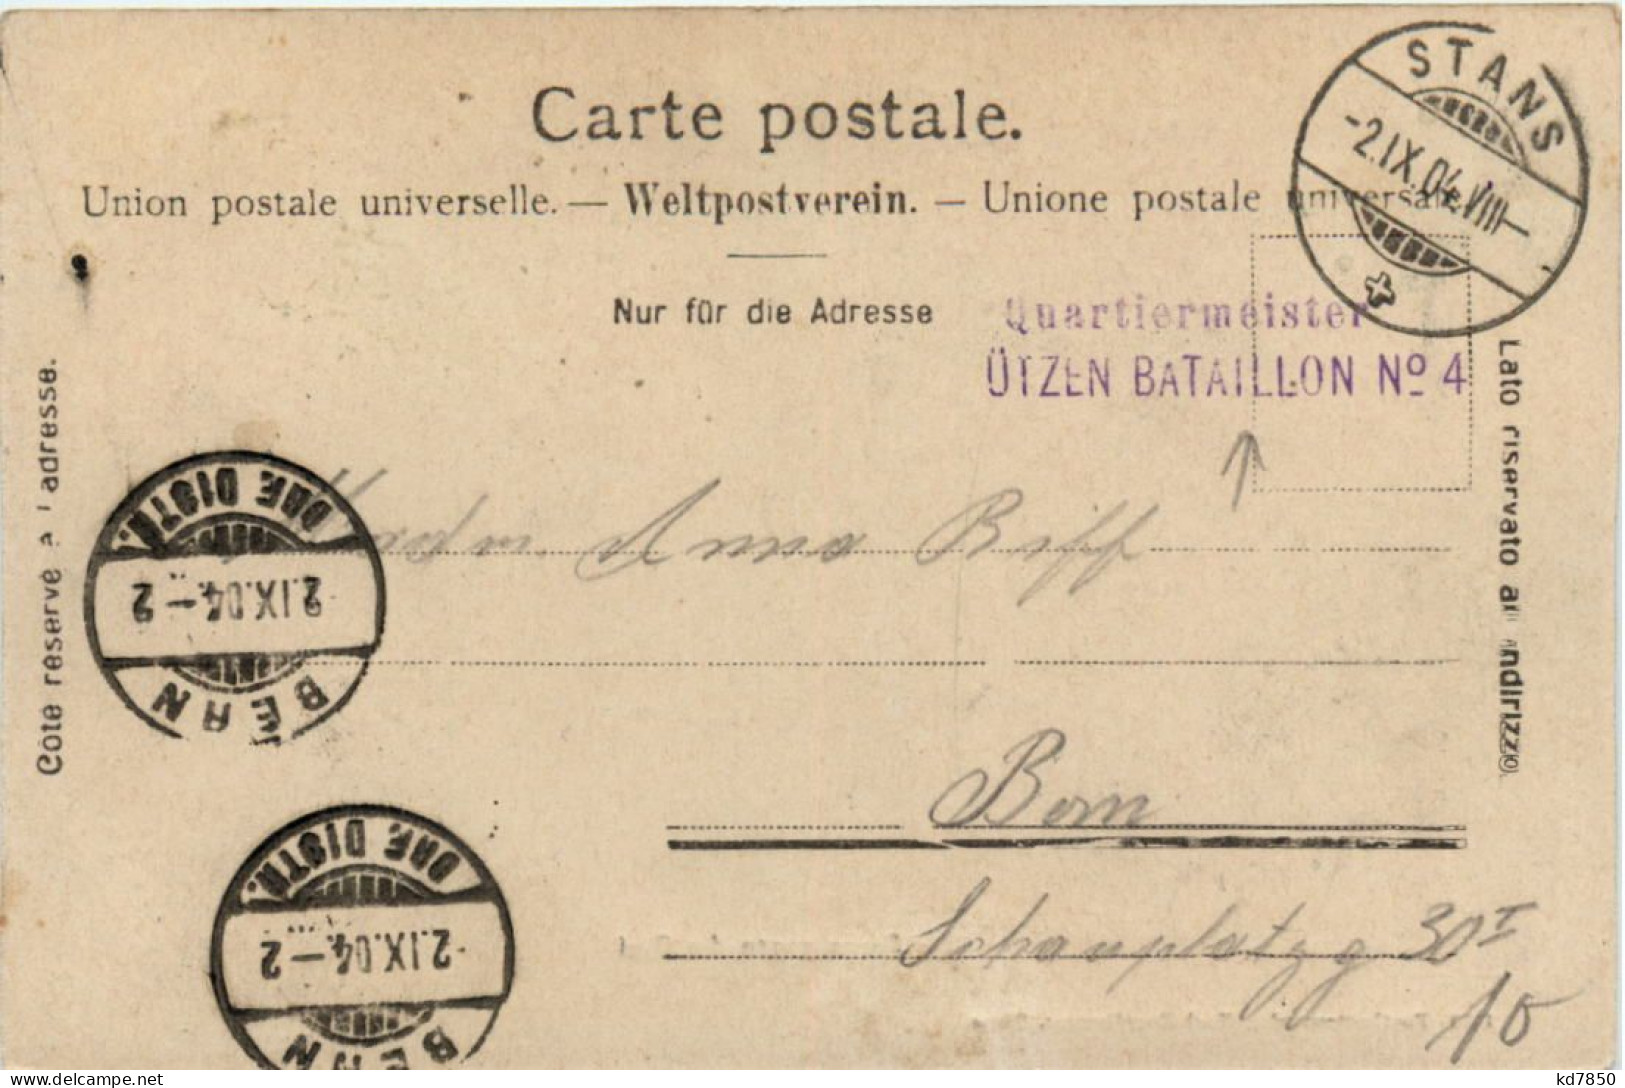 Carte postale.
STANS
-2.IX.04.VIII-
Union postale universelle. — Weltpostverein. — Unione postale universale
Nur für die Adresse
Quartiermeister
ÜTZEN BATAILLON Nº 4
Côté réservé à l'adresse.
Lato riservato all'indirizzo.
BRF. DISTR.
2.IX.04.-2
BERN
Anna
Bern
Schauplatzg 30 I
BRF. DISTR.
2.IX.04.-2
BERN
delcampe.net
kd7850